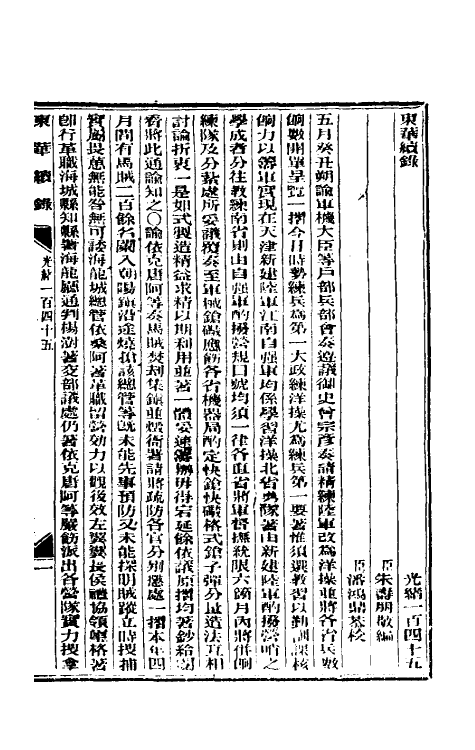 東華續錄
光緒一百四十五
臣朱壽朋敬編
臣潘鴻鼎恭校
五月癸丑朔諭軍機大臣等戶部兵部會奏遵議御史曾宗彥奏請精練陸軍改為洋操並將各省兵數
餉數開單呈覽一摺今日時勢練兵為第一大政練洋操尤為練兵第一要著惟須選教習以勤訓課核
餉力以籌軍實現在天津新建陸軍江南自強軍均係學習洋操北省勇隊著由新建陸軍酌撥營哨之
學成者分往教練南省則由自強軍酌撥營規口號均須一律各直省將軍督撫統限六個月內將併餉
練隊及分紮處所妥議覆奏至軍械槍礮應飭各省機器局酌定快槍快礮格式鎗子彈分量造法互相
討論折衷一是如式製造精益求精以期利用並著一體妥速籌辦毋得宕延餘依議原摺均著鈔給閱
看將此通諭知之〇諭依克唐阿等奏馬賊焚刦集鎮並燬衙署請將疏防各官分別懲處一摺本年四
月間有馬賊二百餘名闖入朝陽鎮沿途燒搶該總管等既未能先事預防又未能探明賊蹤立時搜捕
實屬畏葸無能咎無可諉海龍城總管依桑阿著革職留營効力以觀後效左翼翼長侯禮協領崋格著
卽行革職海城縣知縣署海龍廳通判楊澍著交部議處仍著依克唐阿等嚴飭派出各營隊實力搜拿
東華續錄
光緒一百四十五
一